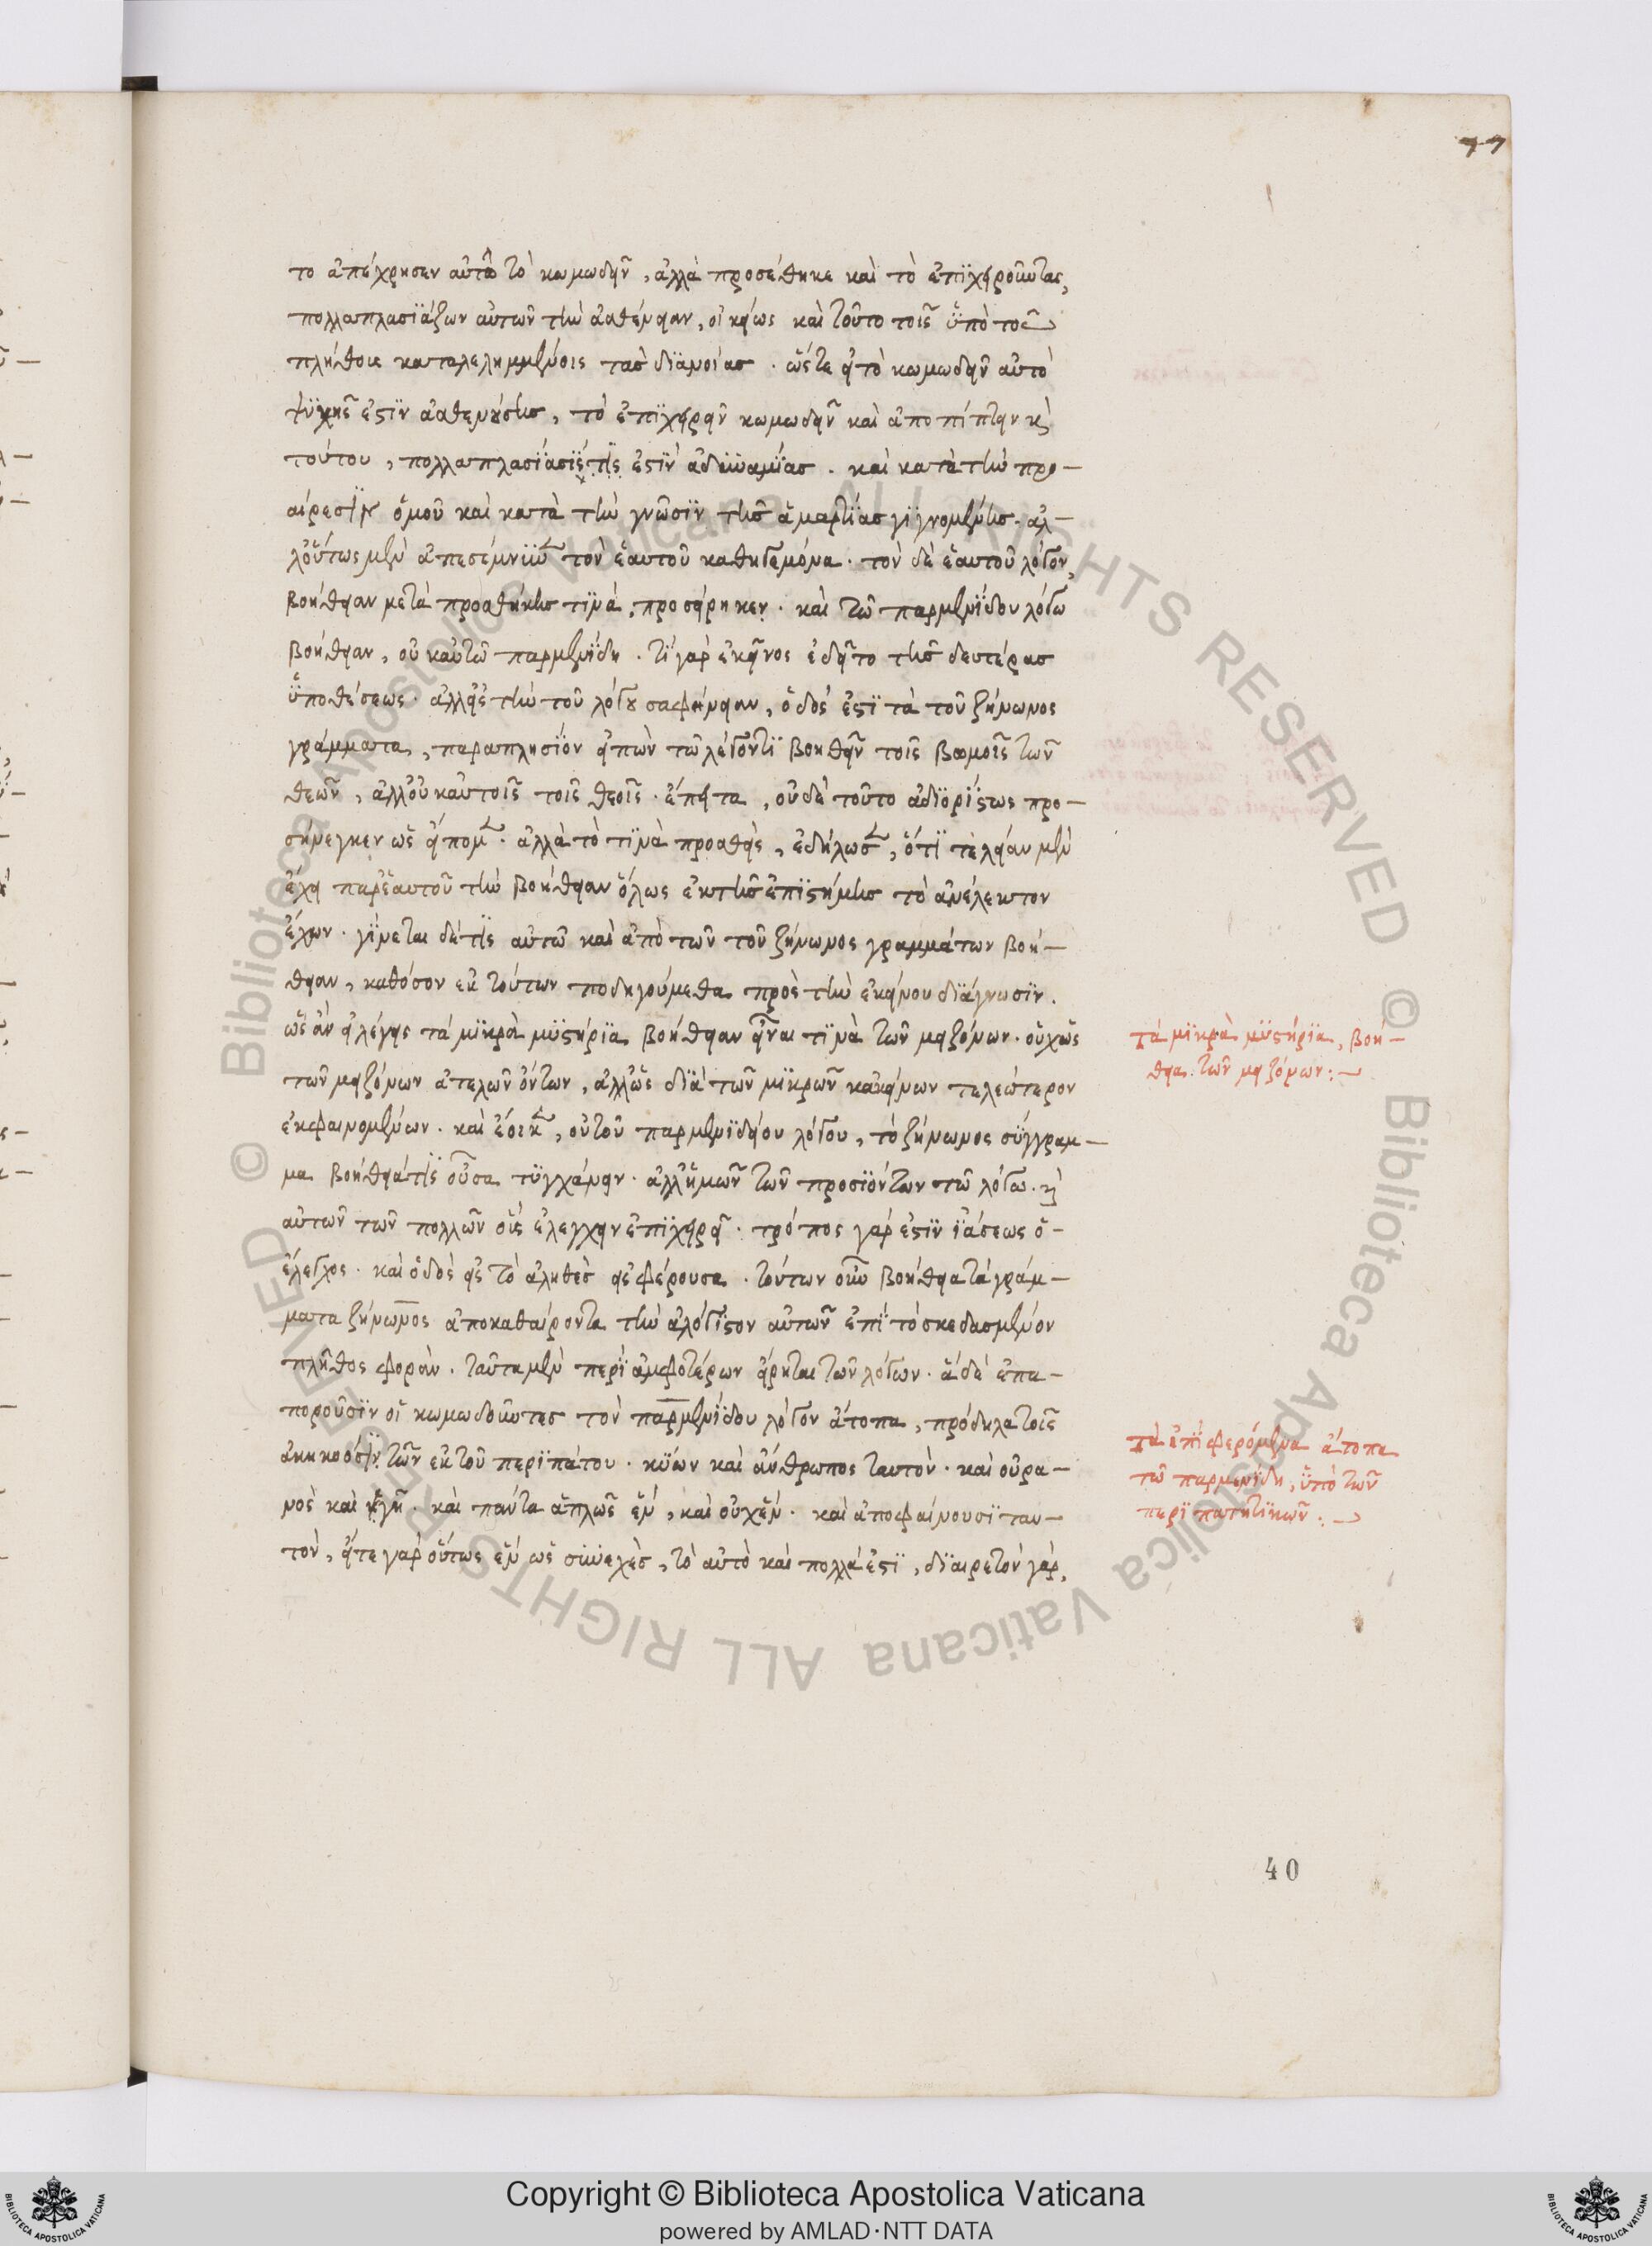 77
το ἀπέχρησεν αὐτῶ τὸ κωμωδεῖν, ἀλλὰ προσέθηκε καὶ τὸ ἐπϊχειροῦντας,
πολλαπλασϊάζων αὐτῶν τὴν ἀσθένειαν, οἰκείως καὶ τοῦτο τοῖς ὑπὸ τοῦ
πλήθους καταλελημμένοις τὰς δϊανοίας. ὥστε εἰ τὸ κωμωδεῖν αὐτὸ
ψϋχῆς ἐστϊν ἀσθενούσης, τὸ ἐπϊχειρεῖν κωμωδεῖν καὶ ἀποπίπτειν καὶ
τούτου, πολλαπλασϊάσϊς τίς ἐστϊν ἀδϋναμΐας. καὶ κατὰ τὴν προ-
αίρεσϊν ὁμοῦ καὶ κατὰ τὴν γνῶσϊν τῆς ἁμαρτΐας γϊγνομένης. ἀλ-
λ' οὕτως μὲν ἀπεσέμνϋνε τὸν ἑαυτοῦ καθηγεμόνα. τὸν δὲ ἑαυτοῦ λόγον,
βοήθειαν μετὰ προσθήκης τϊνὰ, προσείρηκεν. καὶ τῶ παρμενΐδου λόγω
βοήθειαν, οὐκ αὐτῶ παρμενΐδη. τί γὰρ ἐκεῖνος ἐδεῖτο τῆς δευτέρας
ὑποθέσεως. ἀλλ' εἰς τὴν τοῦ λόγου σαφήνειαν, ὁδός ἐστϊ τὰ τοῦ ζήνωνος
γράμματα, παραπλησΐον εἰπὼν τῶ λέγοντϊ βοηθεῖν τοῖς βωμοῖς τῶν
θεῶν, ἀλλ' οὐκ αὐτοῖς τοῖς θεοῖς. ἔπειτα, οὐδὲ τοῦτο ἀδϊορίστως προ-
σήνεγκεν ὡς εἴπομεν. ἀλλὰ τὸ τϊνὰ προσθεὶς, ἐδήλωσεν, ὅτϊ τελείαν μὲν
ἔχει παρ' ἑαυτοῦ τὴν βοήθειαν ὅλως ἐκ τῆς ἐπϊστήμης τὸ ἀνέλεγκτον
ἔχων. γΐνεται δέ τϊς αὐτῶ καὶ ἀπὸ τῶν τοῦ ζήνωνος γραμμάτων βοή-
θεια, καθόσον ἐκ τούτων ποδηγούμεθα πρὸς τὴν ἐκείνου δϊάγνωσϊν.
ὡς ἂν εἰ λέγεις τὰ μϊκρὰ μϋστήρϊα, βοήθειαν εἶναι τϊνὰ τῶν μειζόνων. οὐχ ὡς
τῶν μειζόνων ἀτελῶν ὄντων, ἀλλ' ὡς δϊὰ τῶν μϊκρῶν κἀκείνων τελεώτερον
ἐκφαινομένων. καὶ ἔοικεν, οὐ τοῦ παρμενϊδείου λόγου, τὸ ζήνωνος σύγγραμ-
μα βοήθειά τϊς οὖσα τϋγχάνειν. ἀλλ' ἡμῶν τῶν προσϊόντων τῶ λόγω. καὶ
αὐτῶν τῶν πολλῶν οὓς ἐλέγχειν ἐπϊχειρεῖ. τρόπος γάρ ἐστϊν ϊάσεως ὁ
ἔλεγχος. καὶ ὁδὸς εἰς τὸ ἀληθὲς εἰσφέρουσα. τούτων οὖν βοήθεια τὰ γράμ-
ματα ζήνωνος ἀποκαθαίροντα τὴν ἀλόγϊστον αὐτῶν ἐπὶ τὸ σκεδασμένον
πλῆθος φοράν. ταῦτα μὲν περὶ ἀμφοτέρων εἴρηται τῶν λόγων. ἃ δὲ ἐπα-
ποροῦσϊν οἱ κωμωδοῦντες τὸν παρμενΐδου λόγον ἄτοπα, πρόδηλα τοῖς
ἀκηκοόσϊν τῶν ἐκ τοῦ περϊπάτου. κϋων καὶ ἄνθρωπος ταυτόν. καὶ οὐρα-
νὸς καὶ ἡ γῆ. καὶ πάντα ἁπλῶς ἓν, καὶ οὐχ ἕν. καὶ ἀποφαίνουσϊ ταυ-
τὸν, εἴτε γὰρ οὕτως ἓν ὡς συνεχὲς, τὸ αὐτὸ καὶ πολλά ἐστϊ, δϊαιρετὸν γάρ,
τὰ μϊκρὰ μϋστήρϊα, βοή-
θεια τῶν μειζόνων:
τὰ ἐπϊφερόμενα ἄτοπα
τῶ παρμενΐδη, ὑπὸ τῶν
περϊπατητϊκῶν:
40
© Biblioteca Apostolica Vaticana ALL RIGHTS RESERVED
© Biblioteca Apostolica Vaticana ALL RIGHTS RESERVED
Copyright © Biblioteca Apostolica Vaticana
powered by AMLAD·NTT DATA
BIBLIOTECA APOSTOLICA VATICANA
BIBLIOTECA APOSTOLICA VATICANA